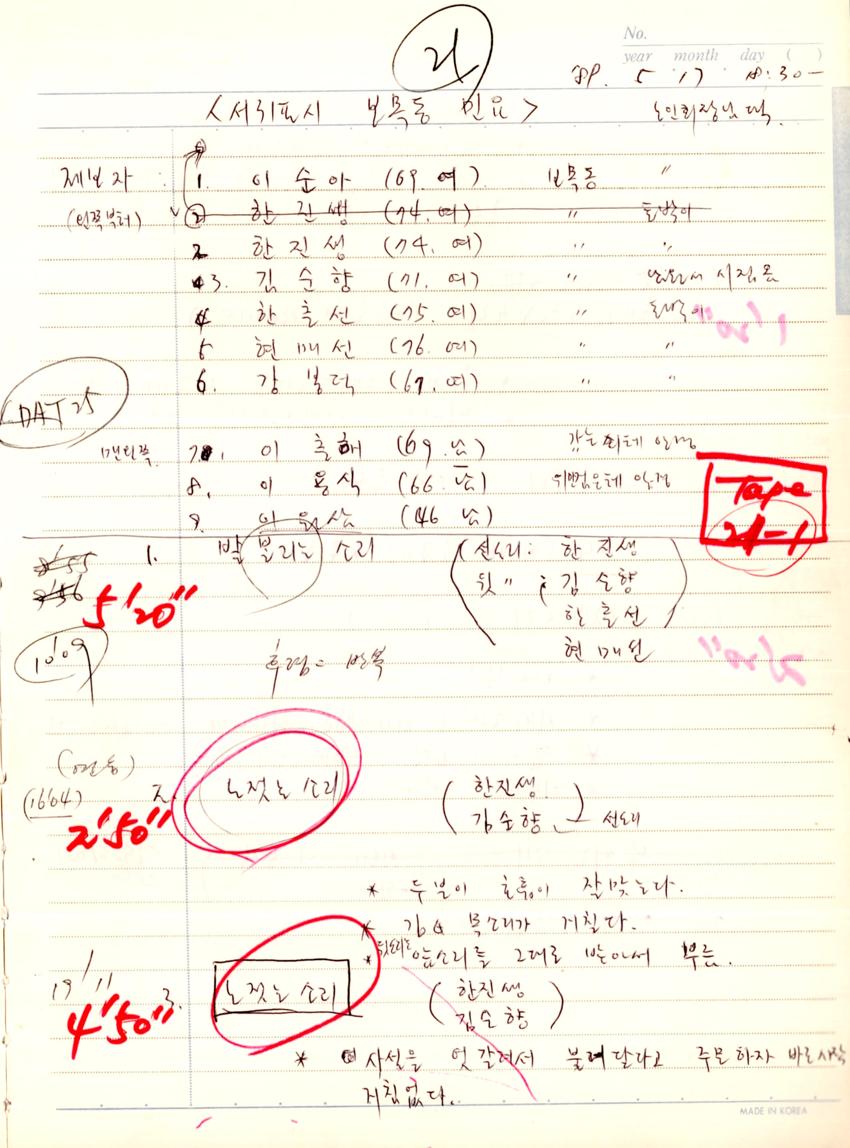 21
No.
year month day ( )
89. 5. 17 8:30-
<서귀포시 보목동 민요> 노인회장님 댁
제보자 : 1. 이순아 (69. 여) 보목동 〃
(왼쪽부터) 2 한진생 (74. 여) 〃 토박이
2 한진생 (74. 여) 〃 〃
3. 김순향 (71. 여) 〃
4 한출선 (75. 여) 〃 토박이
5 현매선 (76. 여) 〃 〃
6. 강봉덕 (67. 여) 〃 〃
DAT 25
맨뒤쪽 7. 이춘해 (69. 남)
8. 이용식 (66. 남)
9. 이원삼 (46 남)
Tape
21-1
1. 밭 볼리는 소리 (선소리: 한진생
뒷〃 : 김순향
한출선
현매선)
5'20"
10'09
후렴= 반복
1'20"
2'20"
(1664)
2. 노젓는 소리 (한진생
김순향) 선소리
2'50"
* 두분이 호흡이 잘맞는다.
* 김순 목소리가 거칠다.
* 뒷소리는 앞소리를 그대로 받아서 부름.
19'11
3. 노젓는 소리 (한진생
김순향)
4'50"
* 사설을 엇갈려서 불러달라고 주문하자 바로시작
거침없다.
MADE IN KOREA